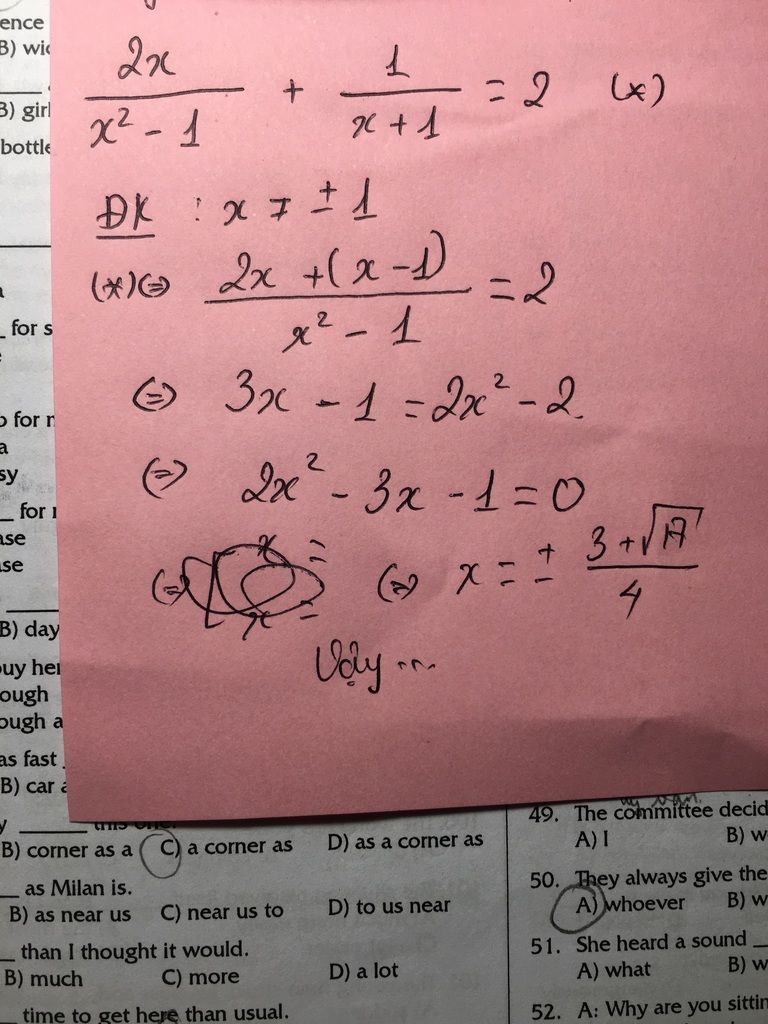 ence
B) wid
2x/(x² - 1) + 1/(x + 1) = 2 (*)
B) girl
bottle
ĐK : x ≠ ± 1
(*) (=) (2x + (x - 1))/(x² - 1) = 2
for s
(=) 3x - 1 = 2x² - 2
for n
a
sy
(=) 2x² - 3x - 1 = 0
for
ase
se
x =
(=)
x =
(=) x = ± (3 + √17)/4
B) day
Vậy ...
uy her
ough
ough a
as fast
B) car a
this one.
B) corner as a C) a corner as D) as a corner as
as Milan is.
B) as near us C) near us to D) to us near
than I thought it would.
B) much C) more D) a lot
time to get here than usual.
49. The committee decid
A) I B) w
50. They always give the
A) whoever B) w
51. She heard a sound
A) what B) w
52. A: Why are you sittin